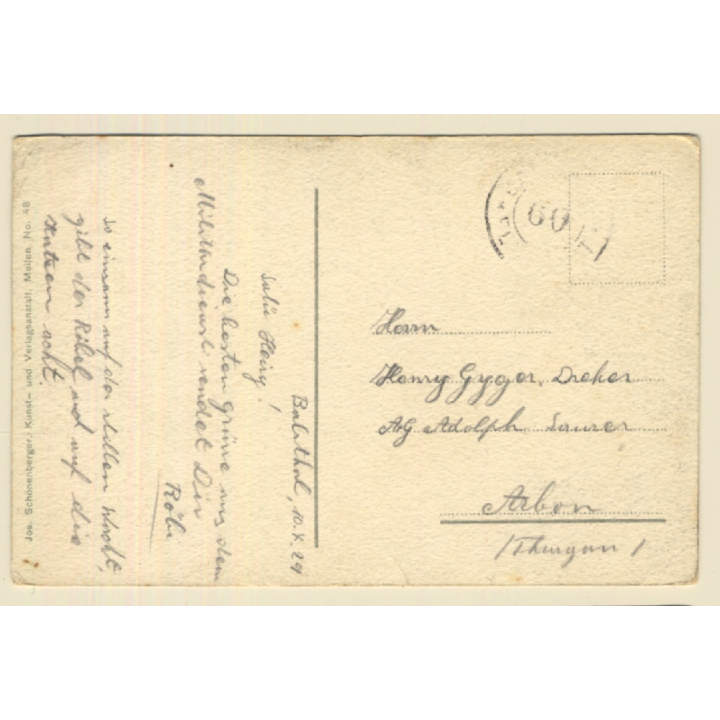 Balsthal, 10. X. 29
Salü Heiny!
Die besten Grüsse aus dem
Militärdienst sendet Dir
Röbi
So einsam auf der stillen Wacht,
gibt der Röbel auf die
Jos. Schönenberger, Kunst- und Verlagsanstalt, Meilen. No. 48
60
Herrn
Henry Gyger, Dreher
AG Adolph Saurer
Arbon
(Thurgau)